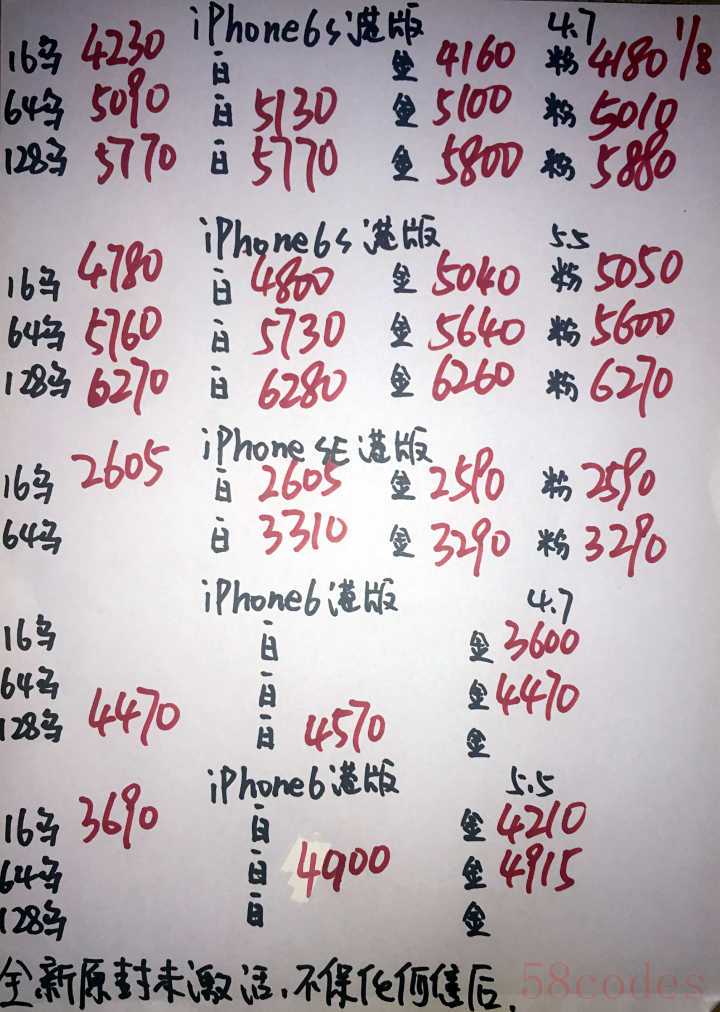 iPhone6s港版 4.7 1/8
16乌 4230 白 金 4160 粉 4180
64乌 5090 白 5130 金 5100 粉 5010
128乌 5770 白 5770 金 5800 粉 5880
iPhone6s港版 5.5
16乌 4780 白 4800 金 5040 粉 5050
64乌 5760 白 5730 金 5640 粉 5600
128乌 6270 白 6280 金 6260 粉 6270
iPhone SE港版
16乌 2605 白 2605 金 2590 粉 2590
64乌 白 3310 金 3290 粉 3290
iPhone6港版 4.7
16乌 白 金 3600
64乌 白 金 4470
128乌 4470 白 4570 金
iPhone6港版 5.5
16乌 3690 白 金 4210
64乌 白 4900 金 4915
128乌 白 金
全新原封未激活,不保任何售后.
58codes